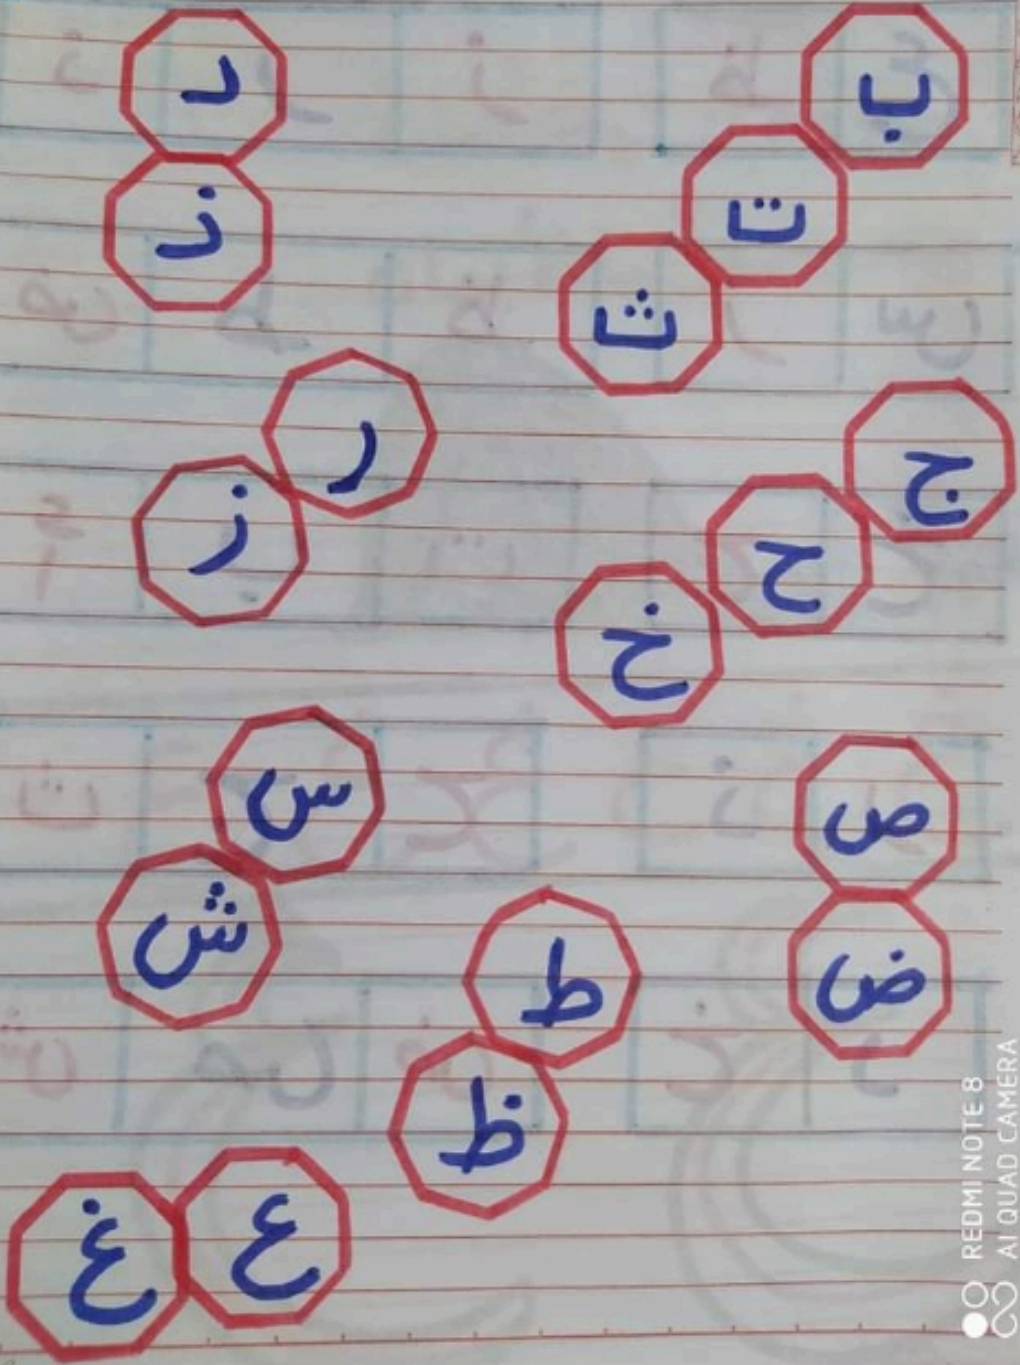 ب
ت
ث
د
ذ
ج
ح
خ
ر
ز
س
ش
ص
ض
ط
ظ
ع
غ
REDMI NOTE 8
AI QUAD CAMERA